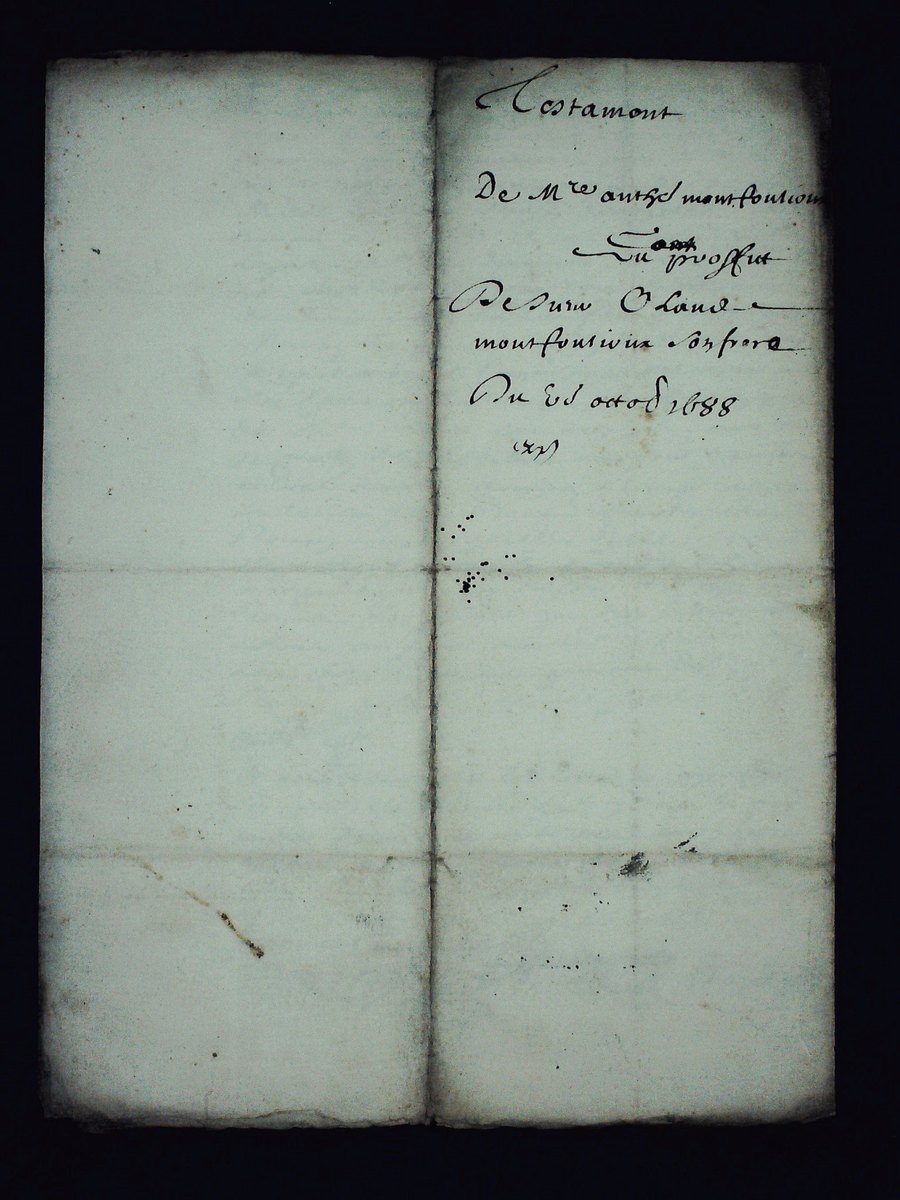 Testament
De Mre anthe montfouilloux
Au proffit
De sieur Claude
montfouilloux son frere
Du octob 1688